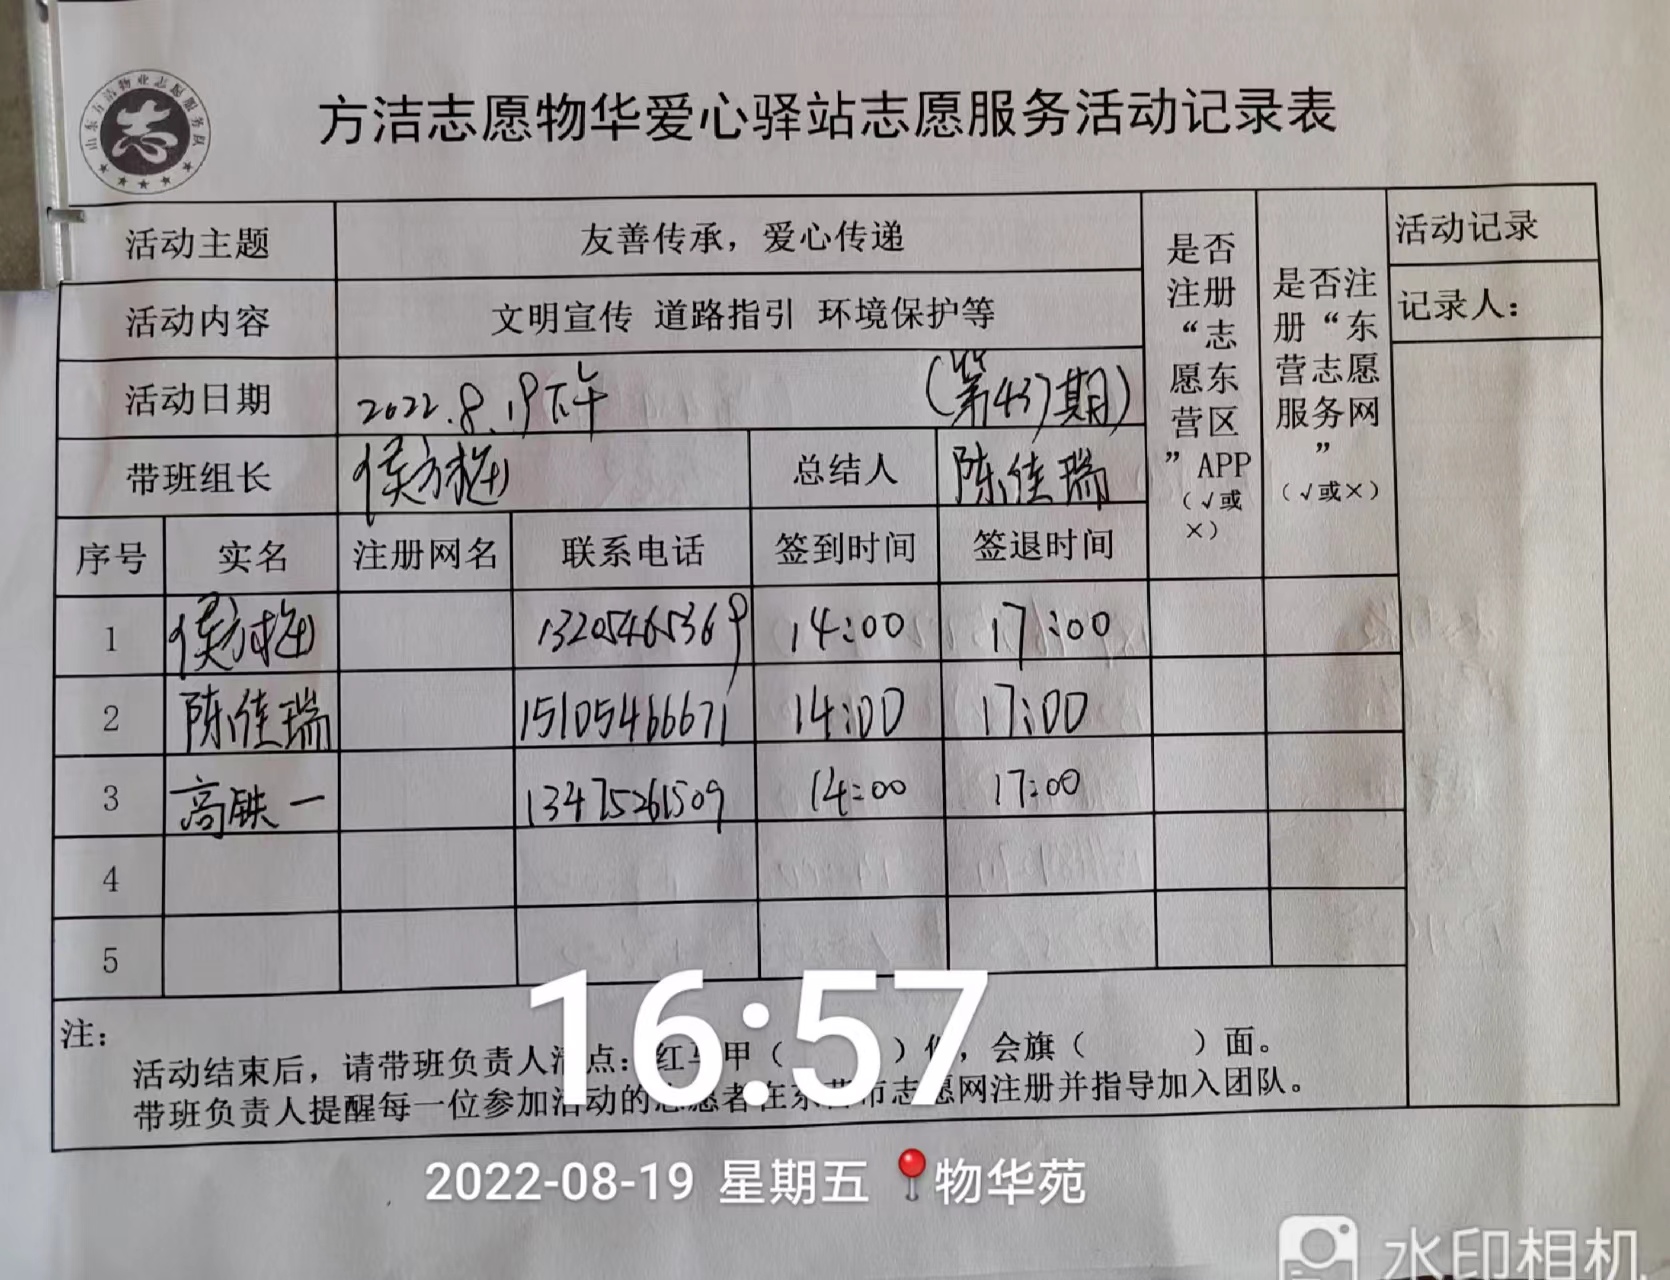 山东方洁物业志愿服务队
志
方洁志愿物华爱心驿站志愿服务活动记录表
活动主题 友善传承，爱心传递
活动内容 文明宣传 道路指引 环境保护等
活动日期 2022.8.19下午 (第437期)
带班组长 侯方梅 总结人 陈佳瑞
是否注册“志愿东营区”APP（√或×）
是否注册“东营志愿服务网”（√或×）
活动记录
记录人：
序号 实名 注册网名 联系电话 签到时间 签退时间
1 侯方梅 13205465369 14:00 17:00
2 陈佳瑞 15105466671 14:00 17:00
3 高铁一 13475261509 14:00 17:00
4
5
注：
活动结束后，请带班负责人清点：红马甲（ ）件，会旗（ ）面。
带班负责人提醒每一位参加活动的志愿者在东营市志愿网注册并指导加入团队。
16:57
2022-08-19 星期五 物华苑
水印相机